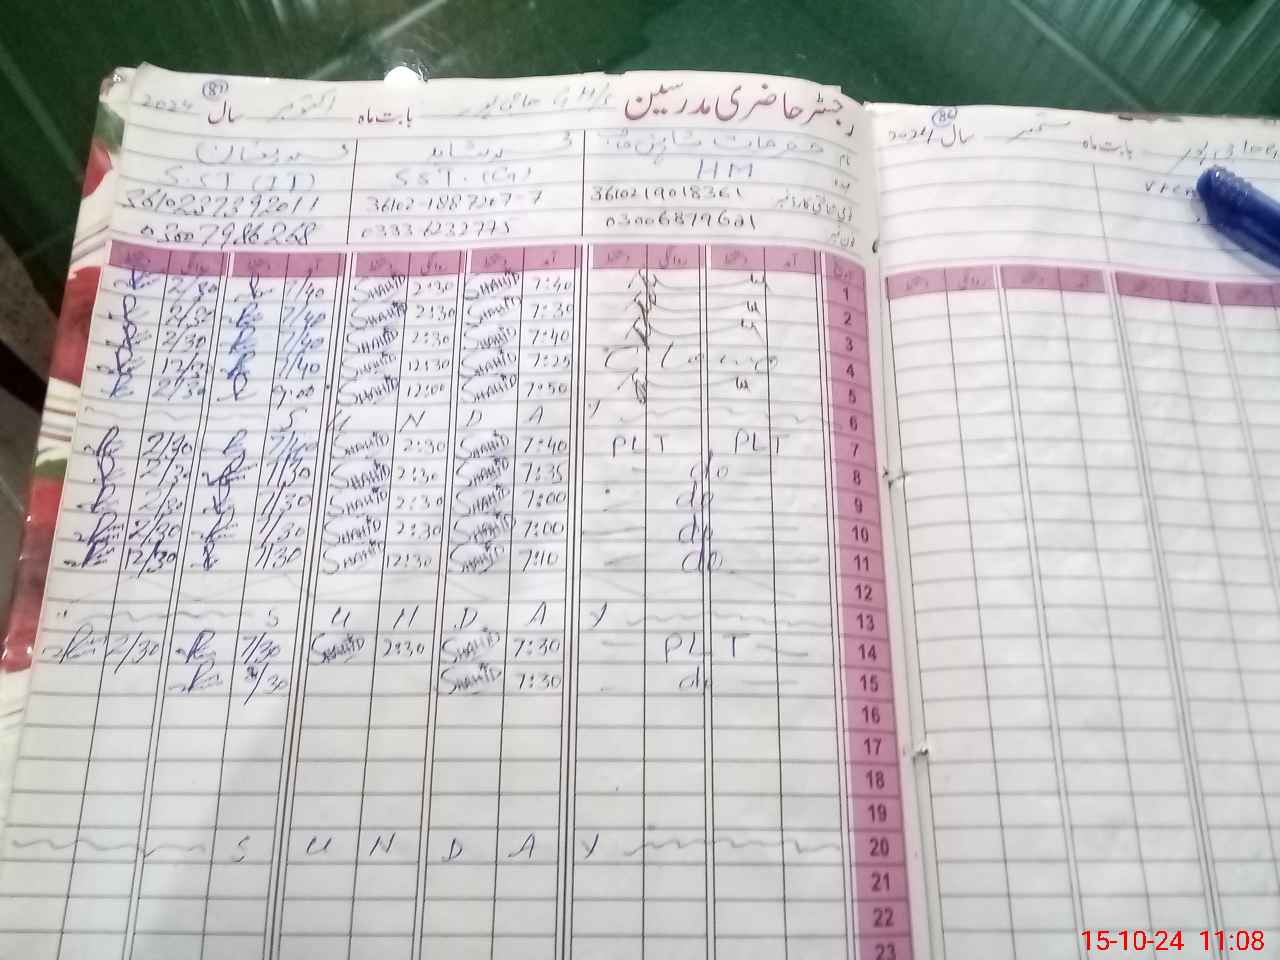 رجسٹر حاضری مدرسین G H/S حاجی پور بابت ماہ اکتوبر سال 2024 (87)
نام
HM S.ST. (G) S.ST (IT)
3610219018361 36102-1887207-7 3610237392011
فون نمبر 03006879621 03336232775 03007986268
تاریخ آمد دستخط روانگی دستخط آمد دستخط روانگی دستخط آمد دستخط روانگی دستخط
1 7:40 SHAHID 2:30 SHAHID 7/40 2/30
2 7:30 SHAHID 2:30 SHAHID 7/40 2/30
3 7:40 SHAHID 2:30 SHAHID 7/40 2/30
4 7:25 SHAHID 12:30 SHAHID 7/40 12/30
5 7:50 SHAHID 12:00 SHAHID 9:00 2/30
6 S U N D A Y
7 PLT PLT 7:40 SHAHID 2:30 SHAHID 7/40 2/30
8 do 7:35 SHAHID 2:30 SHAHID 7/30 2/30
9 do 7:00 SHAHID 2:30 SHAHID 7/30 2/30
10 do 7:00 SHAHID 2:30 SHAHID 7/30 2/30
11 do 7:10 SHAHID 12:30 SHAHID 7/30 12/30
12
13 S U N D A Y
14 PLT 7:30 SHAHID 2:30 SHAHID 7/30 2/30
15 do 7:30 SHAHID 7/30
16
17
18
19
20 S U N D A Y
21
22
23
بابت ماہ ستمبر سال 2024 (86)
15-10-24 11:08